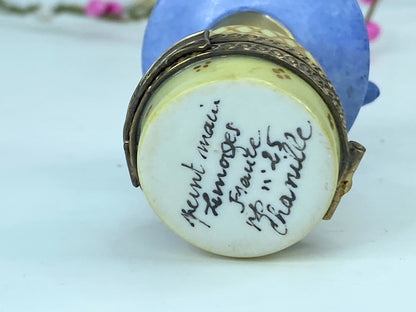 peint main
Limoges
France
N° 25
Chanille